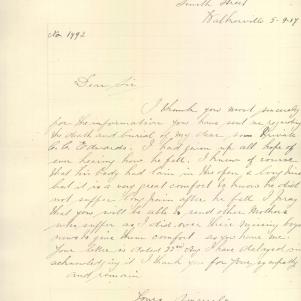 Fourth Street
Walkerville 5-9-17
No 1992
Dear Sir
I thank you most sincerely
for the information you have sent me regarding
the death and burial of my dear son Private
C. Edwards. I had given up all hope of
ever hearing how he fell. I knew of course
that his body had lain in the open a long time
but it is a very great comfort to know he did
not suffer long pain after he fell. I pray
that you will be able to send other Mothers
who suffer as I did over their missing boys
news to give them comfort as you have me.
Your letter is dated 23rd July I have delayed in
acknowledging it I thank you for your sympathy
and remain
Yours Sincerely